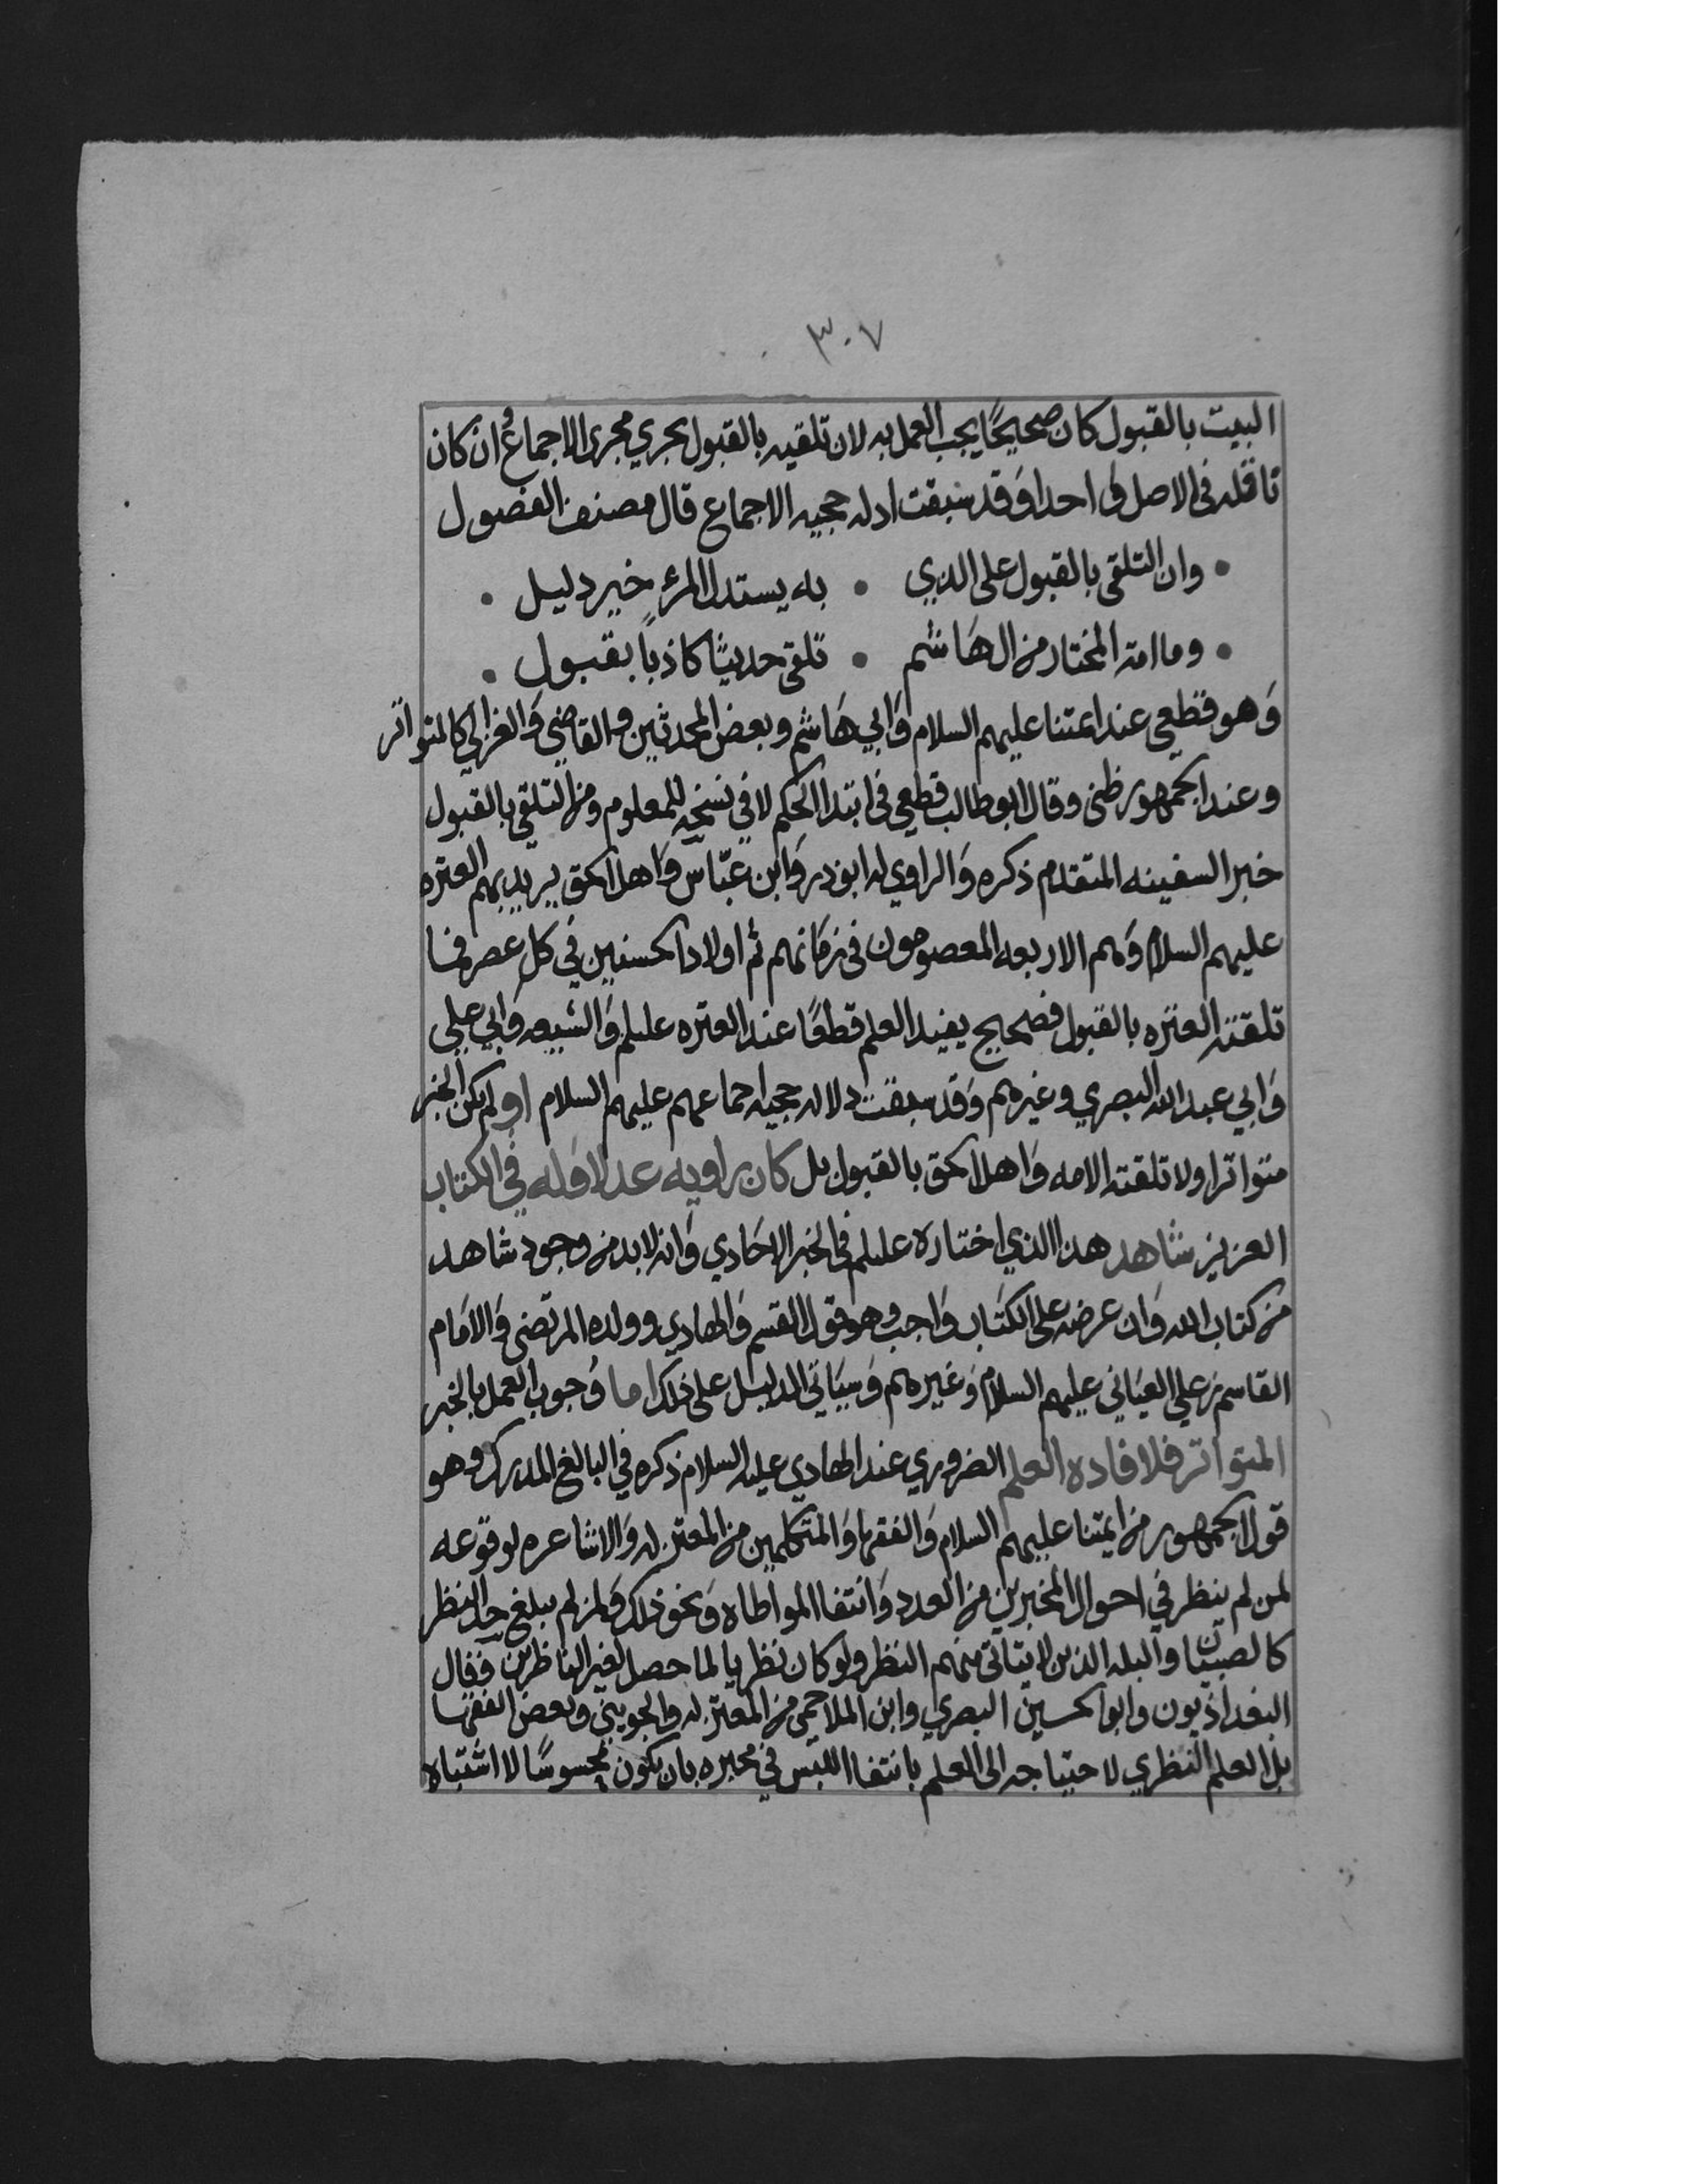 ٣٠٧
البيت بالقبول كان صحيحًا يجب العمل به لان تلقيه بالقبول يجري مجرى الاجماع وان كان
ناقله في الاصل واحدا وقد سبقت ادله حجيه الاجماع قال مصنف الفصول
• وان التلقى بالقبول على الذي • به يستدل المرء خير دليل •
• وما امة المختار من ال هاشم • تلقى حديثا كاذبا بقبول •
وهو قطعي عند ائمتنا عليهم السلام وابي هاشم وبعض المحدثين والقاضي والغزالي كالمتواتر
وعند الجمهور ظني وقال ابو طالب قطعي في ابتدا الحكم لا في نسخه للمعلوم ومن التلقي بالقبول
خبر السفينه المتقدم ذكره والراوي له ابو ذر وابن عباس واهل الحق يريد بهم العتره
عليهم السلام وهم الاربعه المعصومون في زمانهم ثم اولاد الحسنين في كل عصر فما
تلقته العتره بالقبول فصحيح يفيد العلم قطعًا عند العتره عليلم والشيعه وابي علي
وابي عبد الله البصري وغيرهم وقد سبقت دلاله حجيه اجماعهم عليهم السلام او لم يكن الخبر
متواترا ولا تلقته الامه واهل الحق بالقبول بل كان راويه عدلا وله في الكتاب
العزيز شاهد هذا الذي اختاره عليلم في الخبر الاحادي وانه لا بد من وجود شاهد
من كتاب الله وان عرضه على الكتاب واجب وهو قول القسم والهادي وولده المرتضى والامام
القاسم بن علي العياني عليهم السلام وغيرهم وسياتي الدليل على ذلك اما وجوب العمل بالخبر
المتواتر فلافاده العلم الضروري عند الهادي عليه السلام ذكره في البالغ المدرك وهو
قول الجمهور من ايمتنا عليهم السلام والفقها والمتكلمين من المعتزله والاشاعره لوقوعه
لمن لم ينظر في احوال المخبرين من العدد وانتفا المواطاه ونحو ذلك ولمن لم يبلغ حد النظر
كالصبيان والبله الذين لا يتاتى منهم النظر ولو كان نظريا لما حصل لغير الناظرين فقال
البغداذيون وابو الحسين البصري وابن الملاحمي من المعتزله والجويني وبعض الفقها
بل العلم النظري لاحتياجه الى العلم بانتفا اللبس في مخبره بان يكون محسوسًا لا اشتباه